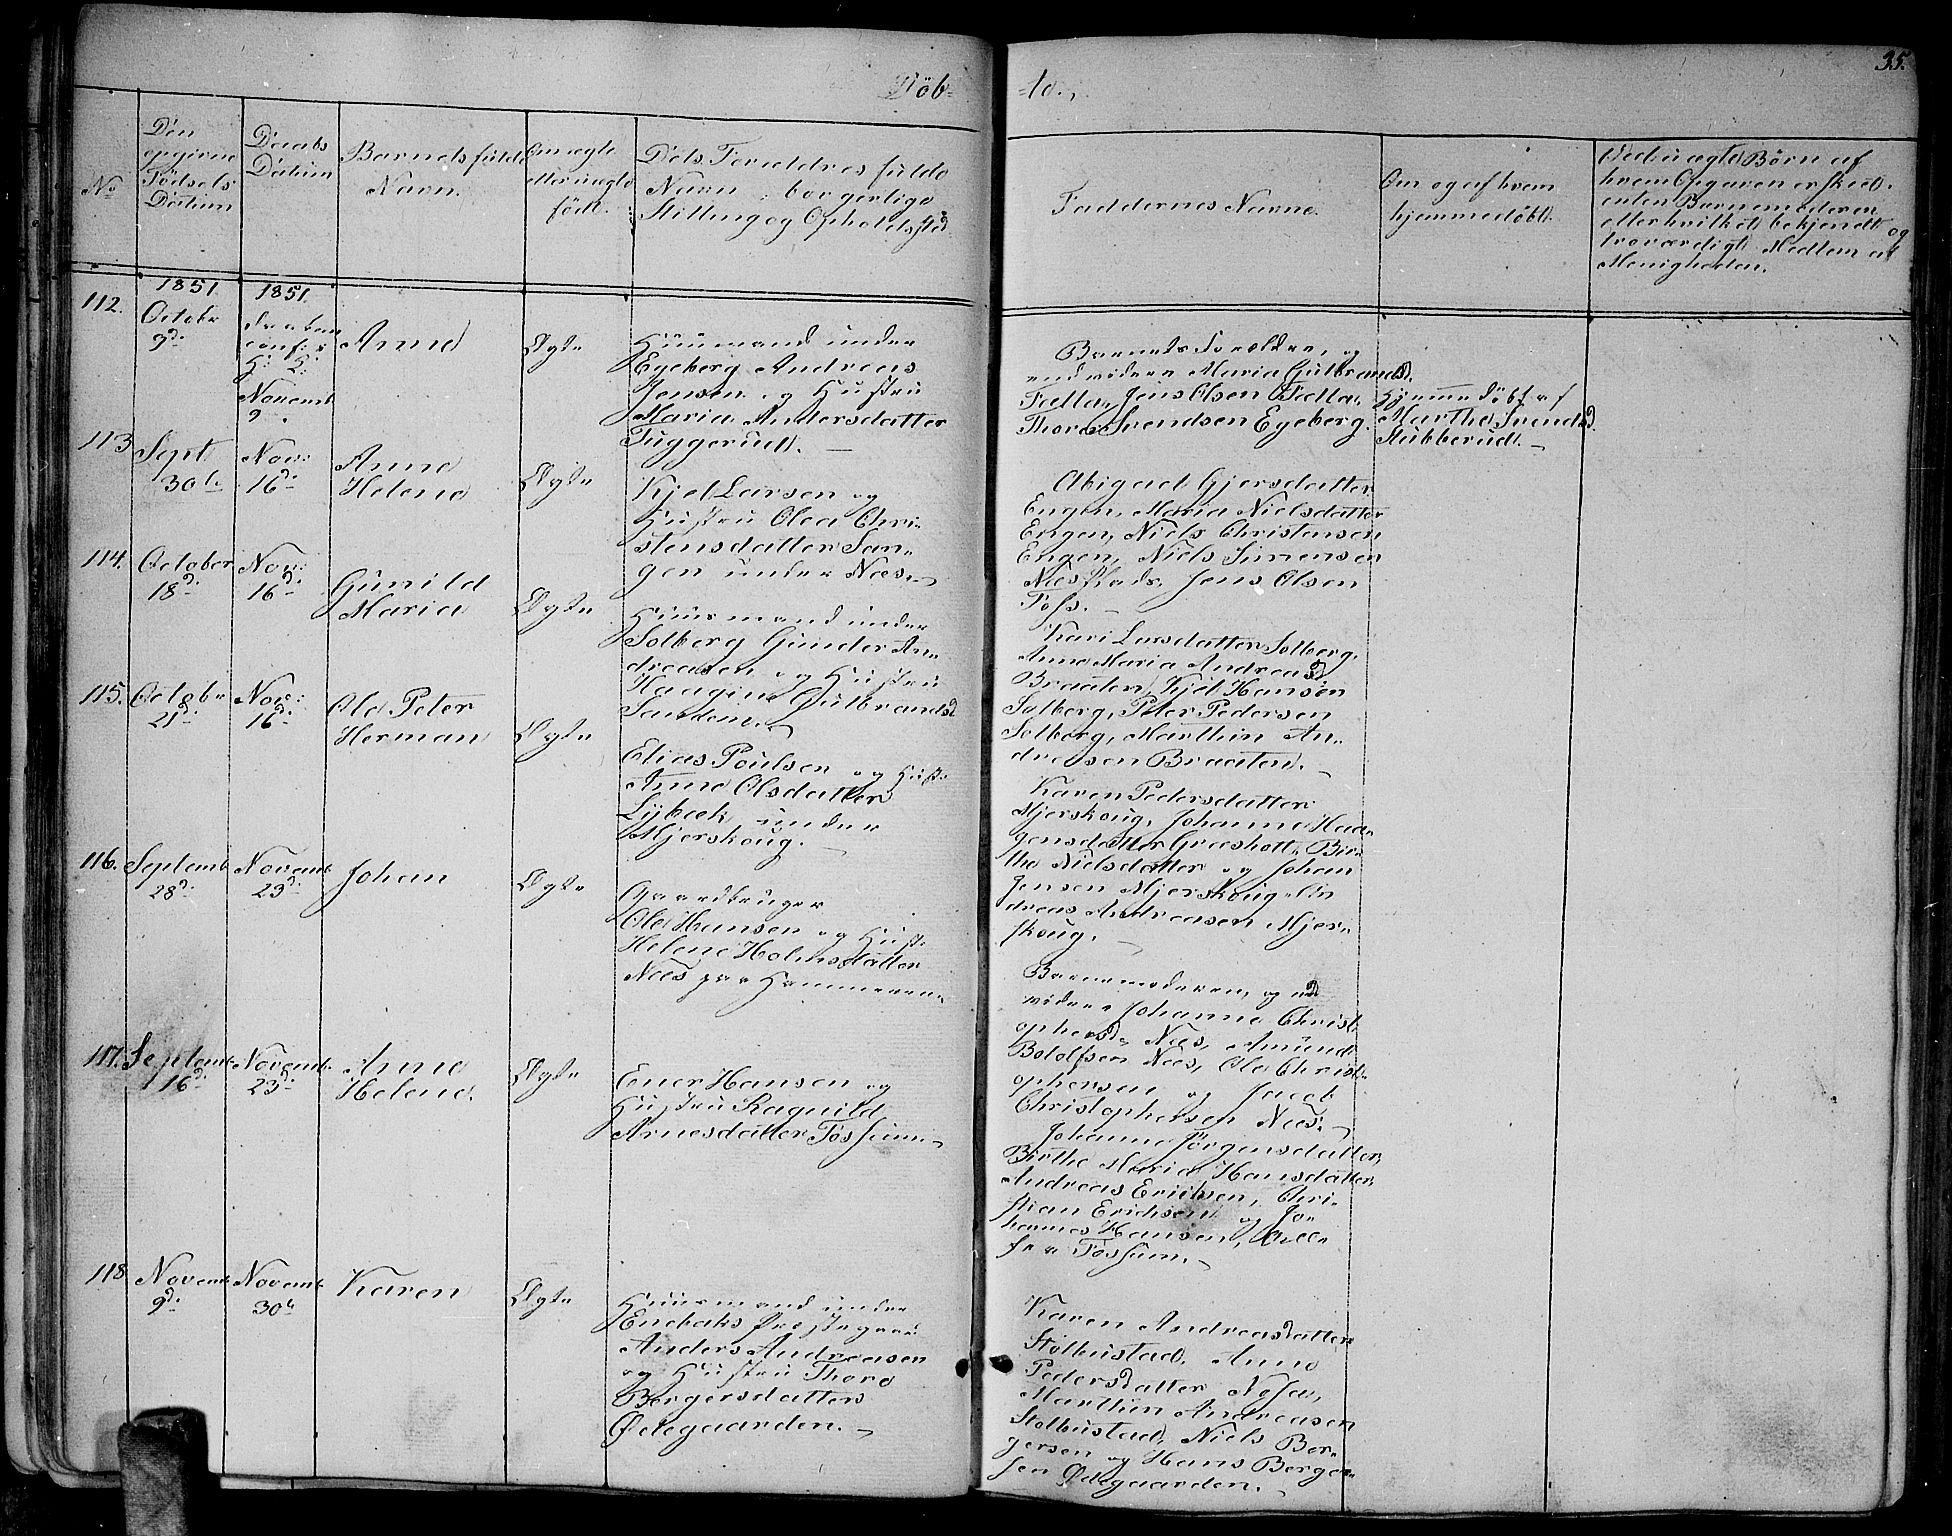 35.
Döb-
-te.
No
Den
opgivne
Födsels
Datum
Daabs
Datum
Barnets fulde
Navn.
Om ægte
eller uægte
födt.
Dets Forældres fulde
Navn, borgerlige
Stilling og Opholdssted
Faddernes Navne.
Om og af hvem
hjemmedöbt.
Ved uægte Börn af
hvem Opgaven er skeet,
enten Barnemoderen
eller hvilket bekjendt og
troværdigt Medlem af
Menigheden.
112.
1851
Octobr
9d.
1851.
Novemb
Anne
Ægte
Huusmand under
Eyeberg Andreas
Jensen og Hustru
Maria Andersdatter
Tuggerud. —
Barnets Forældre, og
endvidere Maria Gulbrandsd.
Fætla, Jens Olsen Fætla,
Thore Svendsen Eyeberg.
Hjemmedöbt af
Marthe Svendsd.
Stubberud. —
113
Sept
30te
Nov:
16d.
Anne
Helene
Ægte
Kjel Larsen og
Hustru Olea Chri-
stensdatter San-
gen under Næs. —
Abigael Gjersdatter
Engen, Maria Nielsdatter
Engen, Niels Christensen
Engen, Niels Sürensen
Næs Plads. Jens Olsen
Foss. —
114.
October
18d.
Nov:
16d.
Gunild
Maria
Ægte
Huusmand under
Solberg Gunder An-
dreasen og Hustru
Haagine Gulbrandsd.
Sandem. —
Kari Larsdatter Solberg,
Anne Maria Andreasd.
Braaten, Kjel Hansen
Solberg, Peter Pedersen
Solberg, Marthin An-
dreasen Braaten. —
115.
Octobr
21d.
Nov:
16d.
Ole Peter
Herman
Ægte
Elias Poulsen og Hust.
Anne Olsdatter
Lybeck under
Mjerskoug. —
Karen Pedersdatter
Mjerskoug, Johanne Haa-
gensdatter Græsholt, Bir-
the Nielsdatter og Johan
Jensen Mjerskoug, An
dreas Andreasen Mjer-
skoug. —
116.
Septemb
28d.
Novemb
23d.
Johan
Ægte
Gaardbruger
Ole Hansen og Hust.
Helene Holmsdatter
Næs paa Hammeren.
Barnemoderen, og end
videre Johanne Christ-
ophersd. Næs, Amund
Botolfsen Næs, Ole Christ-
ophersen og Jacob
Christophersen Næs. —
117.
Septemb
16d.
Novemb.
23d.
Anne
Helene.
Ægte
Ener Hansen og
Hustru Ragnild
Arnesdatter Fossum. —
Johanne Jörgensdatter,
Birthe Maria Hansdatter,
Andreas Erichsen, Chri-
stian Erichsen og Jo-
hannes Hansen, Alle
fra Fossum. —
118
Novemb
9d.
Novemb
30te
Karen
Ægte
Huusmand under
Enebaks Præstegaard
Anders Andreasen
og Hustru Thore
Bergersdatter
Ødegaarden. —
Karen Andreasdatter
Stolbustad, Anne
Pedersdatter Nosa,
Marthin Andreasen
Stolbustad, Niels Ber-
gersen og Hans Berger-
sen Ødegaarden. —